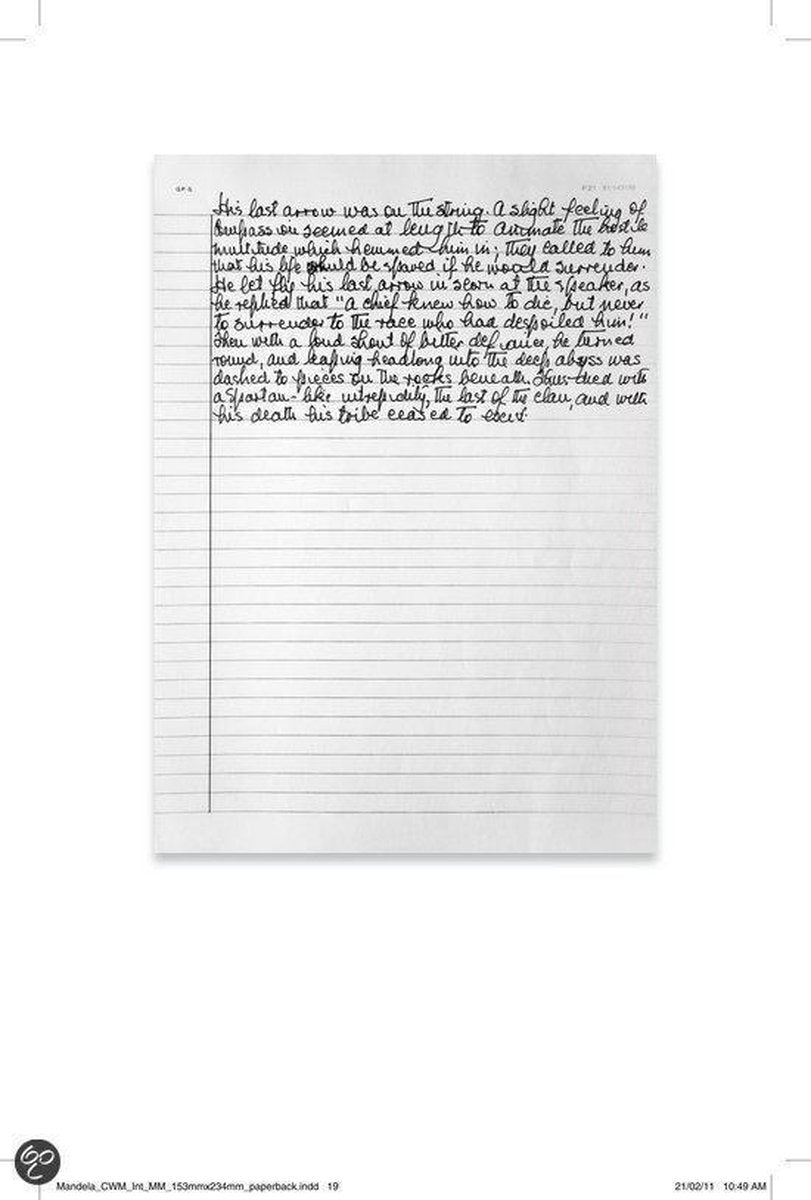 GP-S
His last arrow was on the string. A slight feeling of
compassion seemed at length to animate the hostile
multitude which hemmed him in; they called to him
that his life should be spared if he would surrender.
He let fly his last arrow in scorn at the speaker, as
he replied that "a chief knew how to die, but never
to surrender to the race who had despoiled him!"
Then with a loud shout of bitter defiance, he turned
round, and leaping headlong into the deep abyss was
dashed to pieces on the rocks beneath. Thus died with
a Spartan-like intrepidity, the last of the clan, and with
his death his tribe ceased to exist.
Mandela_CWM_Int_MM_153mmx234mm_paperback.indd 19
21/02/11 10:49 AM